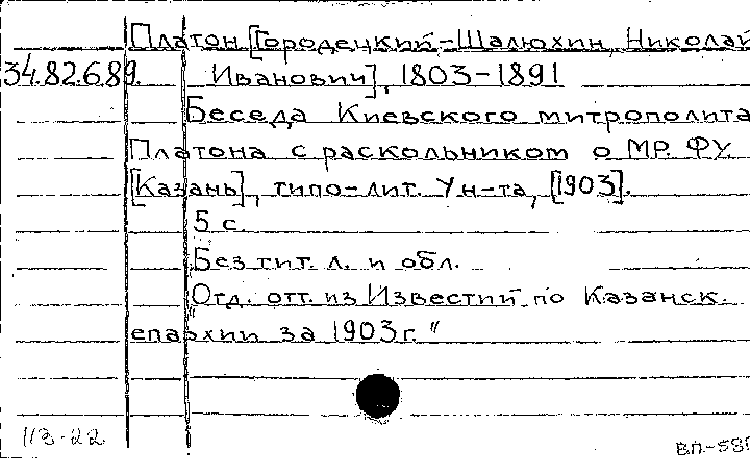 Платон [Городецкий-Шалюхин, Николай
34.82.6.89. Иванович], 1803-1891
Беседа Киевского митрополита
Платона с раскольником о МР. ФУ.
[Казань], типо-лит. Ун-та, [1903].
5 с.
Без тит. л. и обл.
"Отд. отт. из Известий по Казанск.
епархии за 1903г."
113-22
ВП-58